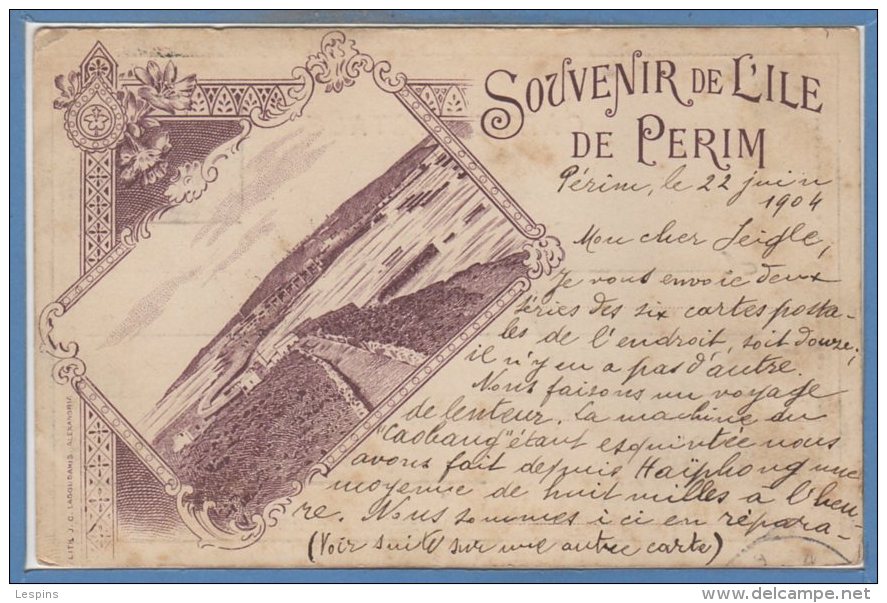 SOUVENIR DE L'ILE
DE PERIM
Périm, le 22 juin
1904
Mon cher Seigle,
Je vous envoie deux
séries des six cartes posta-
les de l'endroit, soit douze;
il n'y en a pas d'autre.
Nous faisons un voyage
de lenteur. La machine du
"Caobang" étant esquintée nous
avons fait depuis Haïphong une
moyenne de huit milles à l'heu-
re. Nous sommes ici en répara-
(Voir suite sur une autre carte)
LITH. J. C. LAGOUDAKIS. ALEXANDRIE
www.delcampe.net
Lespins